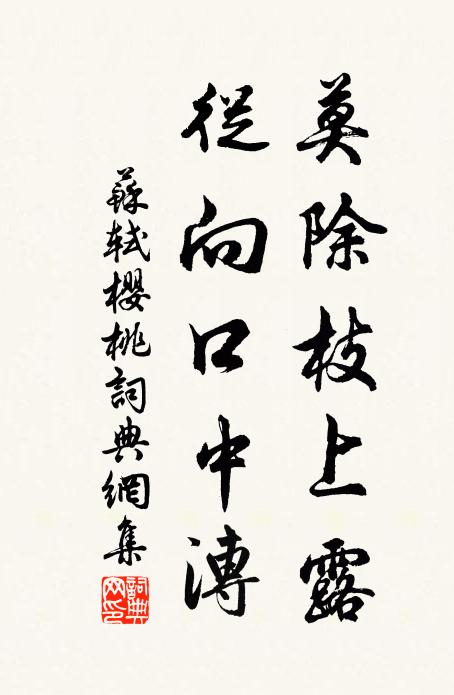 莫除枝上露
從向口中漙
蘇軾櫻桃詞典網集
詞典網印